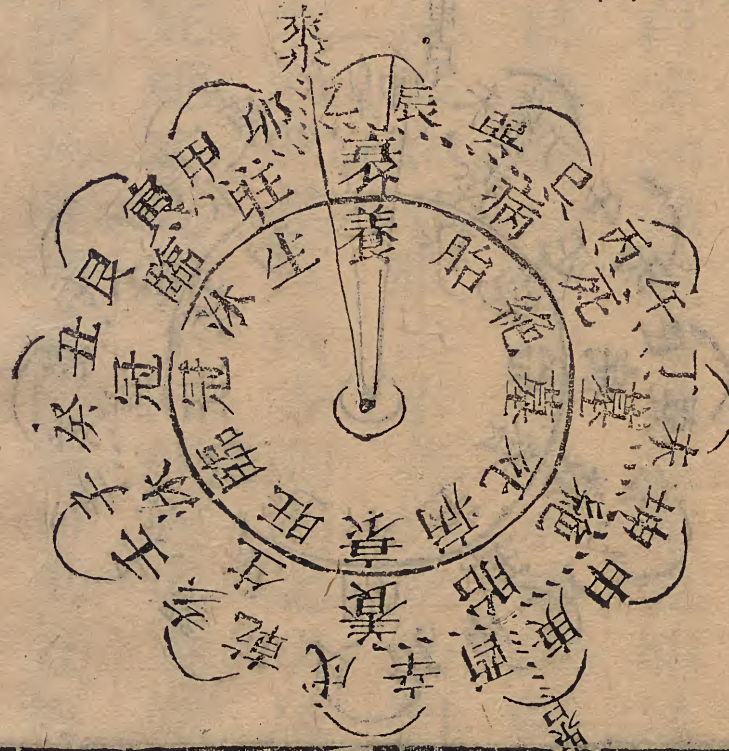 乙辰巽巳丙午丁未坤申庚酉辛戌乾亥壬子癸丑艮寅甲卯
衰病死墓絕胎養生沐冠臨旺
養胎絕墓死病衰旺臨冠沐生